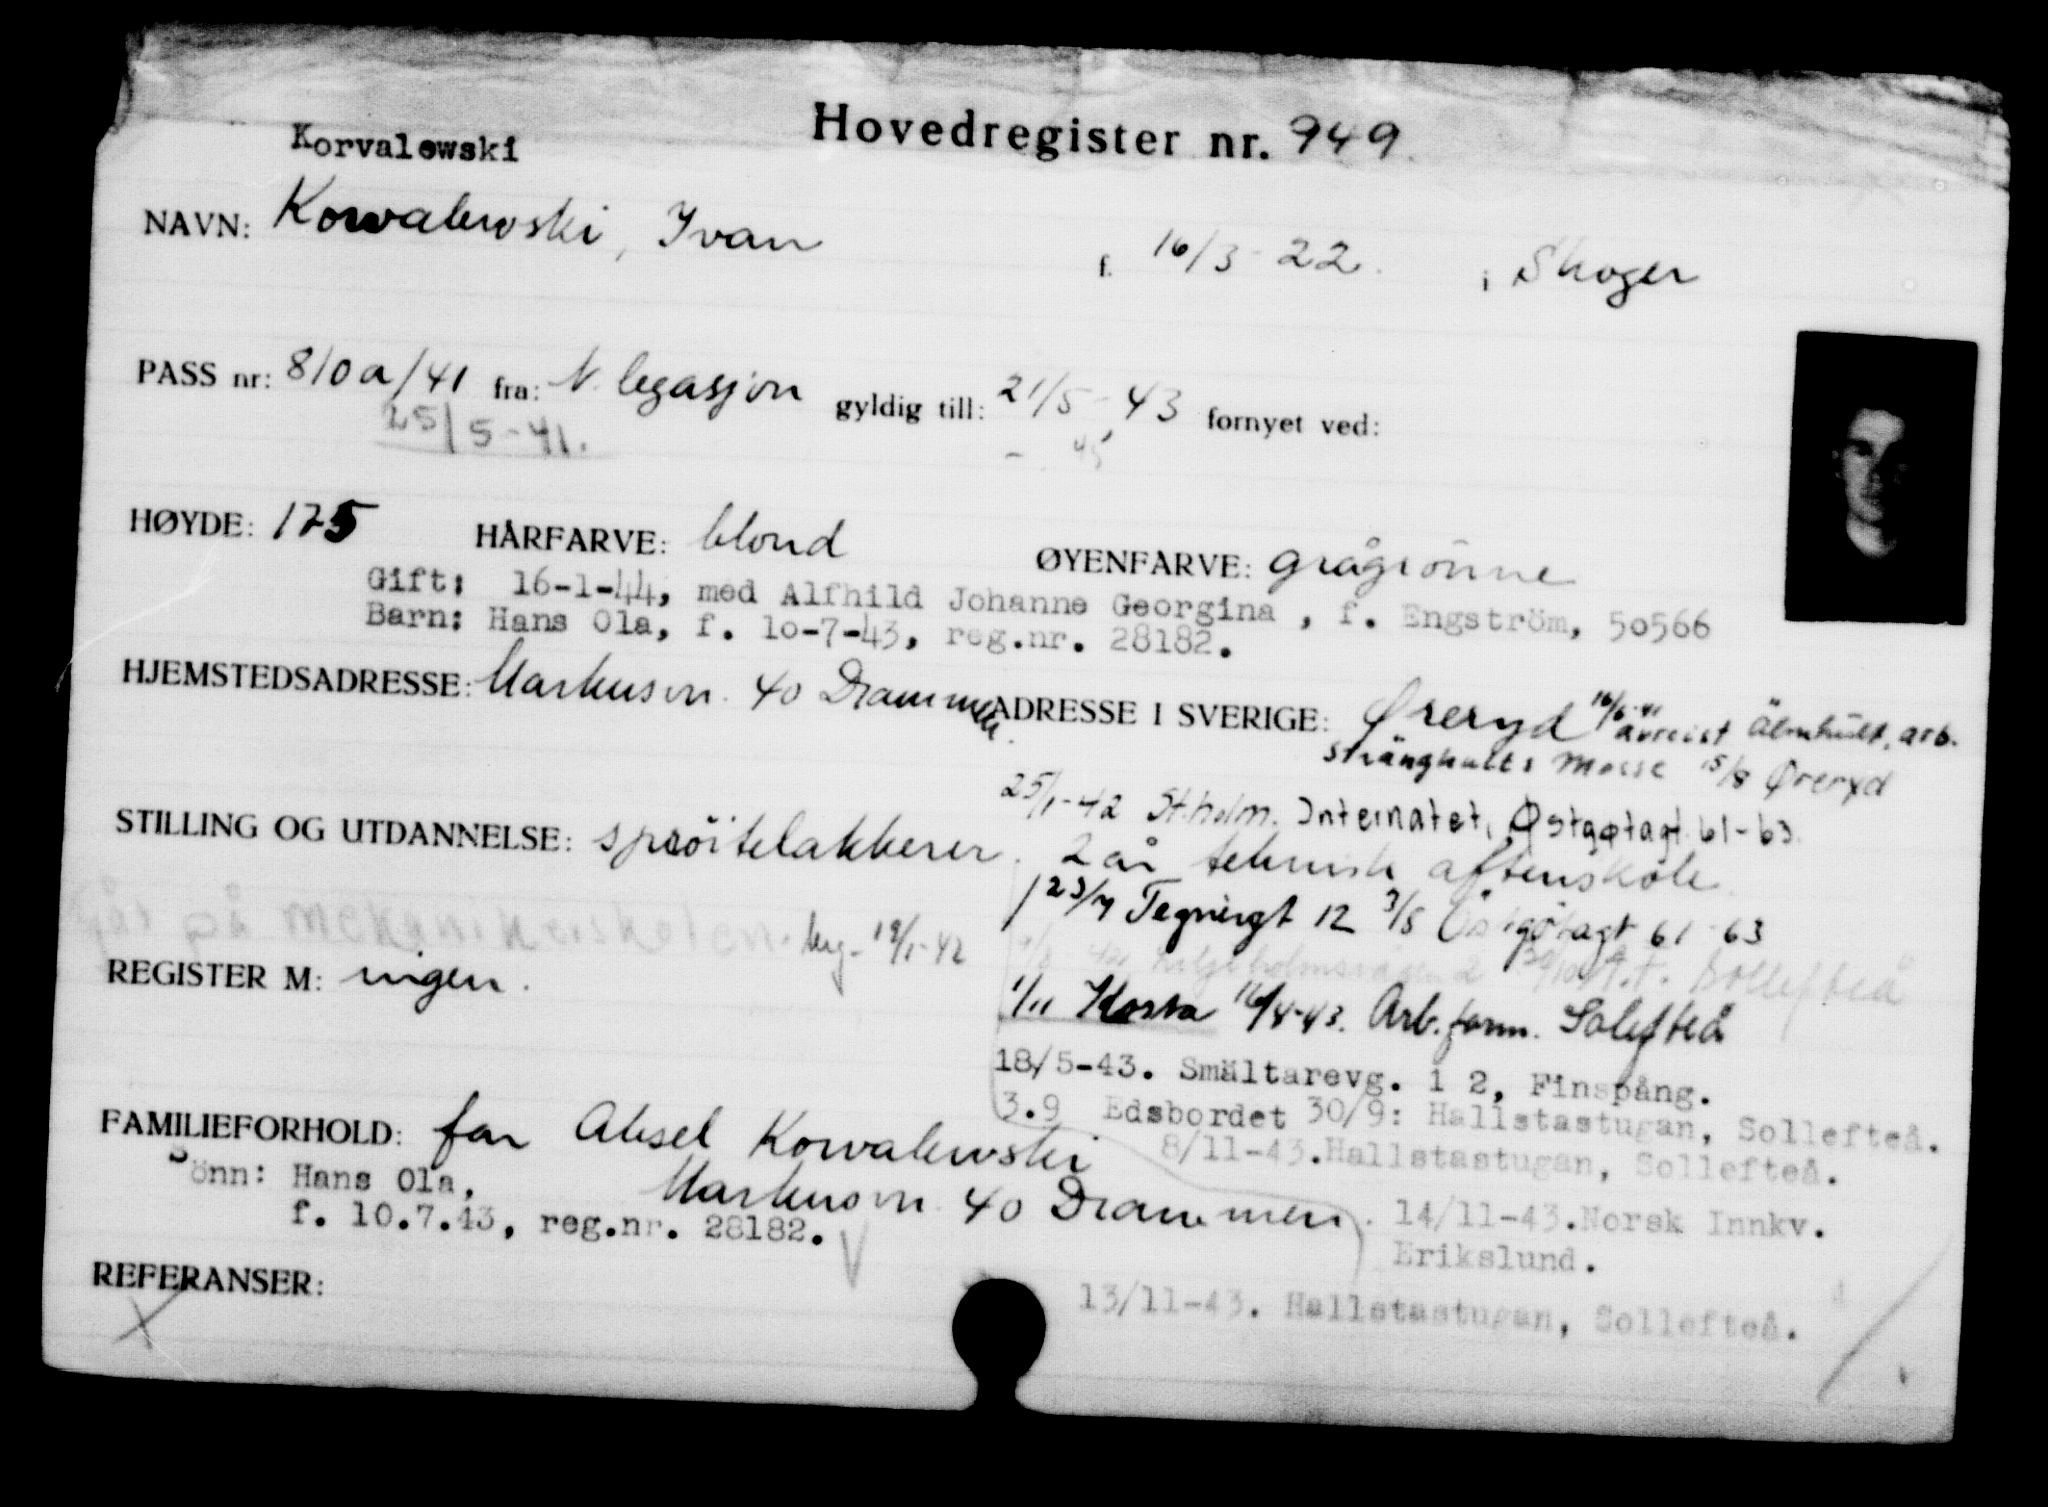 Hovedregister nr. 949
Korvalewski
NAVN: Kowalewski, Ivan f. 16/3-22. i Skoger
PASS nr: 810a/41 fra: N. legasjon gyldig till: 21/5-43 fornyet ved:
25/5-41. - 45
HØYDE: 175 HÅRFARVE: blond ØYENFARVE: grågrönne
Gift: 16-1-44, med Alfhild Johanne Georgina , f. Engström, 50566
Barn: Hans Ola, f. 10-7-43, reg.nr. 28182.
HJEMSTEDSADRESSE: Markusvn. 40 Drammen. ADRESSE I SVERIGE: Øreryd 16/6-41 avreist Älmhult, arb.
Stränghults Mosse 15/8 Øreryd
25/1-42 St.holm. Internatet, Østgøtagt. 61-63.
STILLING OG UTDANNELSE: spröitelakkerer. 2 år teknisk aftenskole
23/4 Tegnérgt 12 3/5 Östgötagt 61-63
Går på mekanikerskolen. 19/1-42
Liljeholmsvägen 2 A.F. Sollefteå
REGISTER M: ingen.
1/11 Kosta 16/4-43. Arb.form. Solefteå
18/5-43. Smältarevg. 1 2, Finspång.
3.9 Edsbordet 30/9: Hallstastugan, Sollefteå.
FAMILIEFORHOLD: far Aksel Kowalewski
8/11-43.Hallstastugan, Sollefteå.
Sönn: Hans Ola, Markusvn. 40 Drammen.
f. 10.7.43, reg.nr. 28182.
14/11-43.Norsk Innkv.
Erikslund.
REFERANSER:
13/11-43. Hallstastugan, Sollefteå.